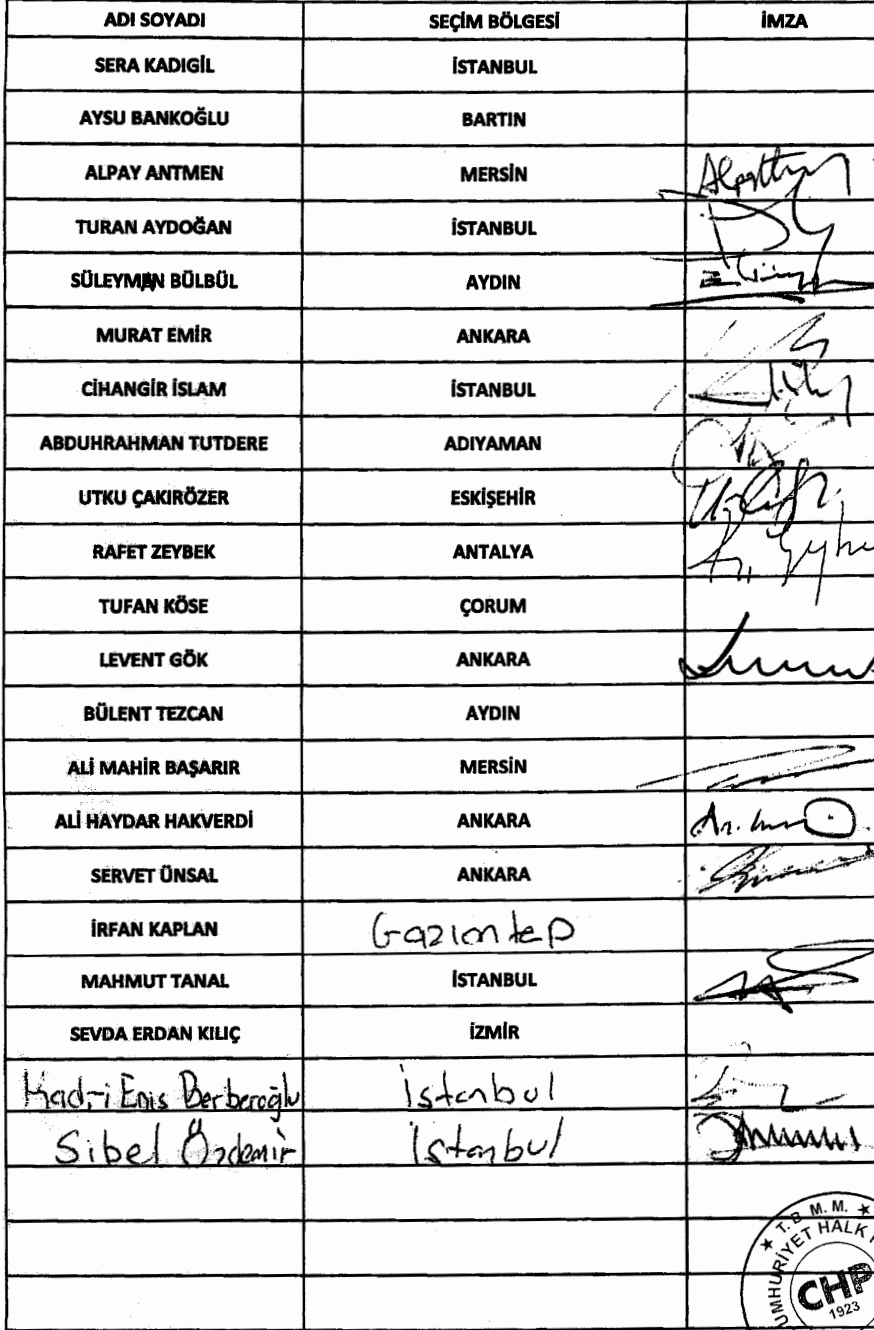 ADI SOYADI SEÇİM BÖLGESİ İMZA
SERA KADIGİL İSTANBUL
AYSU BANKOĞLU BARTIN
ALPAY ANTMEN MERSİN
TURAN AYDOĞAN İSTANBUL
SÜLEYMAN BÜLBÜL AYDIN
MURAT EMİR ANKARA
CİHANGİR İSLAM İSTANBUL
ABDUHRAHMAN TUTDERE ADIYAMAN
UTKU ÇAKIRÖZER ESKİŞEHİR
RAFET ZEYBEK ANTALYA
TUFAN KÖSE ÇORUM
LEVENT GÖK ANKARA
BÜLENT TEZCAN AYDIN
ALİ MAHİR BAŞARIR MERSİN
ALİ HAYDAR HAKVERDİ ANKARA
SERVET ÜNSAL ANKARA
İRFAN KAPLAN Gaziantep
MAHMUT TANAL İSTANBUL
SEVDA ERDAN KILIÇ İZMİR
Kadri Enis Berberoğlu İstanbul
Sibel Özdemir İstanbul
T.B.M.M.
UMHURİYET HALK
CHP
1923